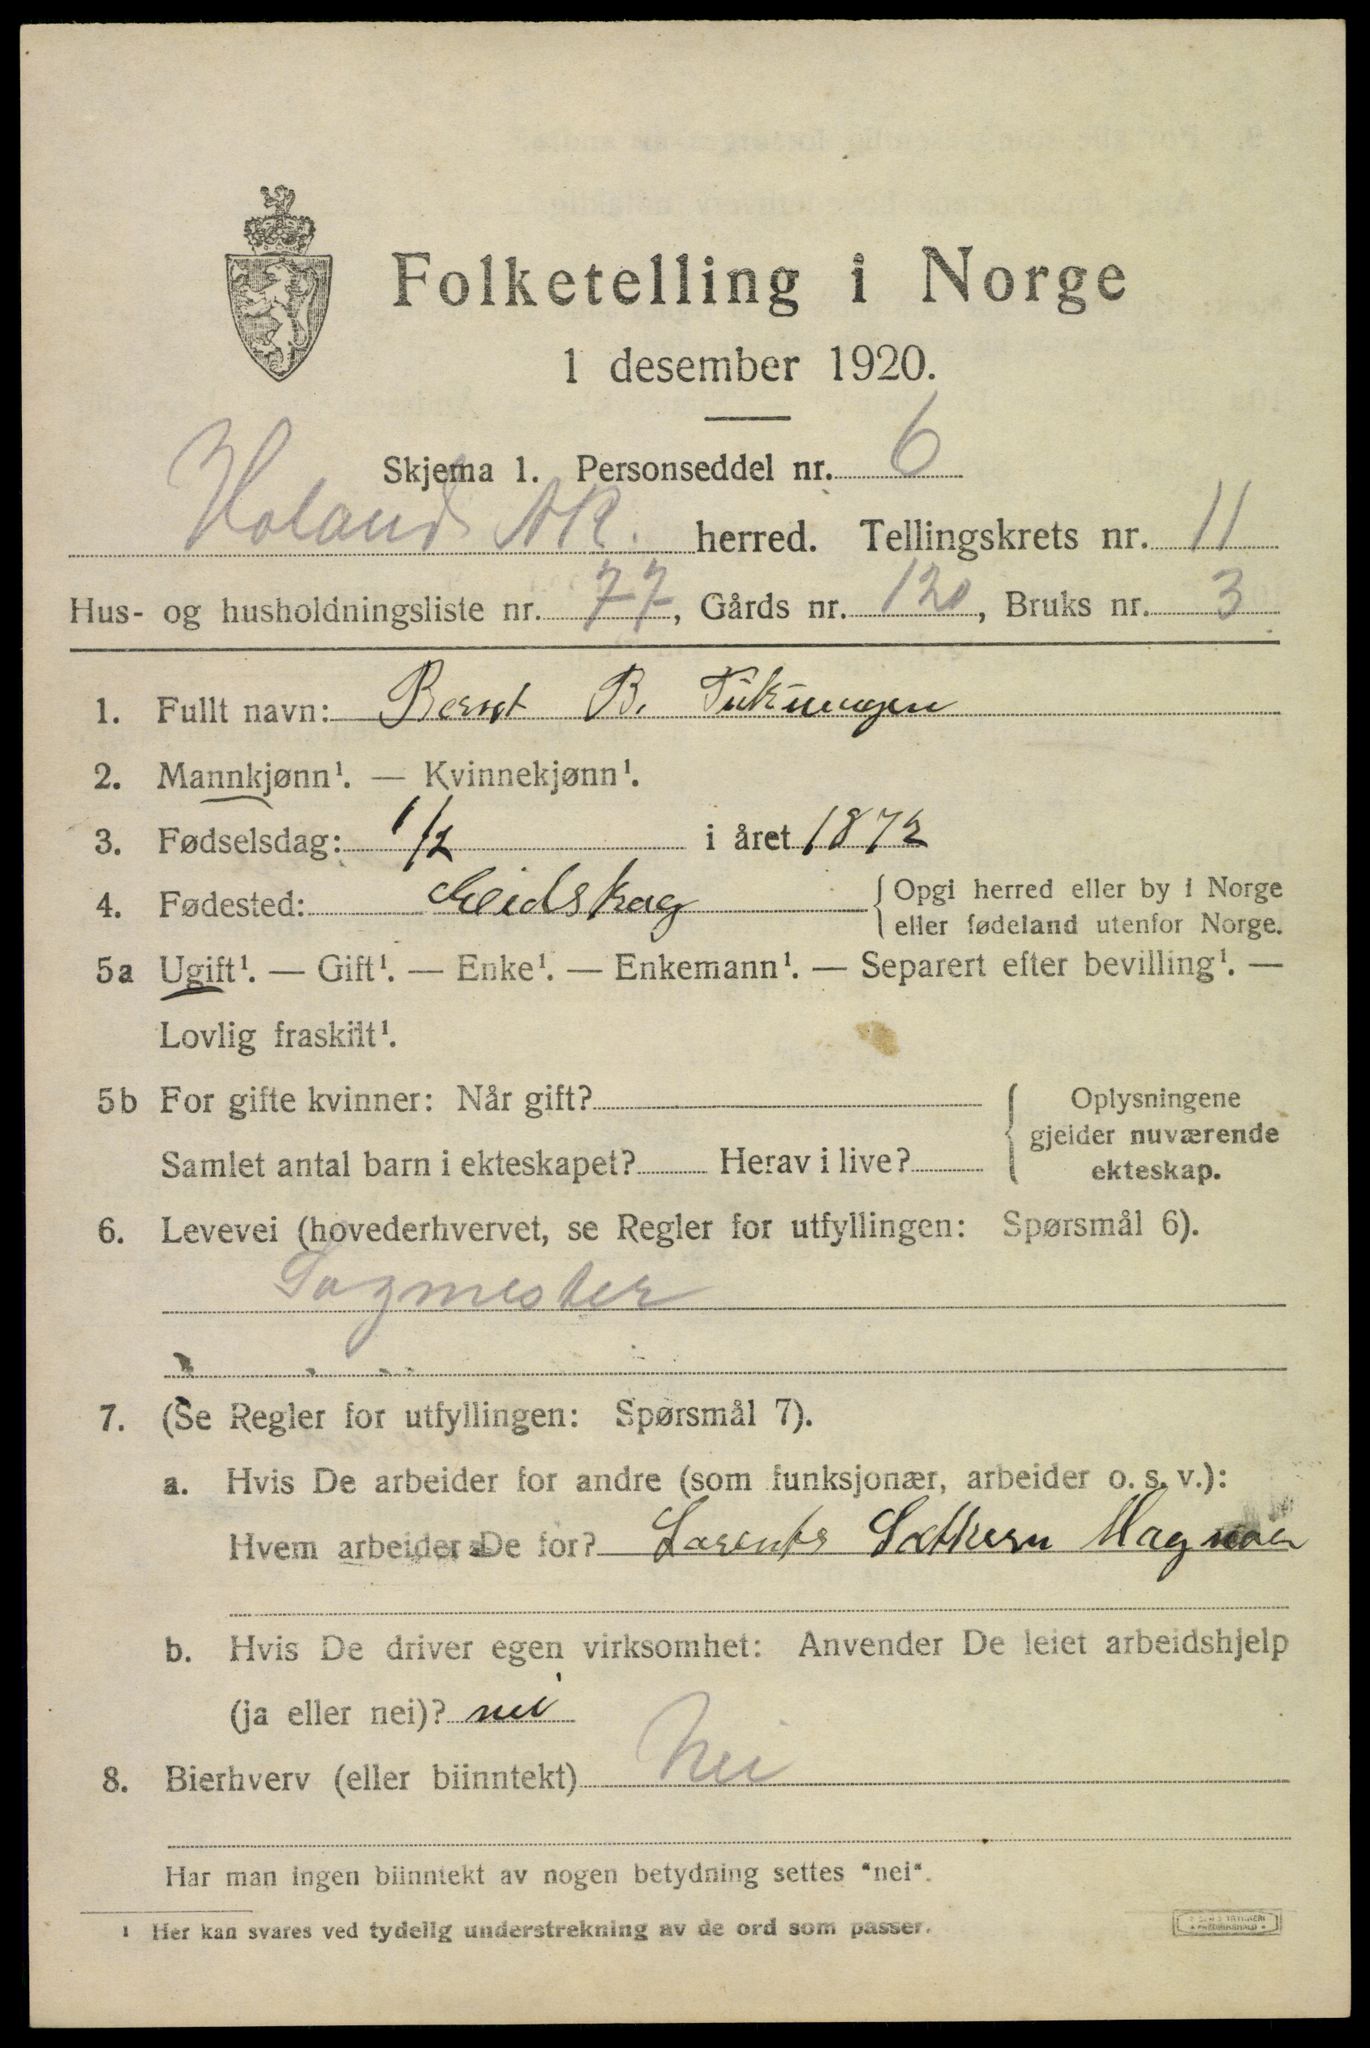 Folketelling i Norge
1 desember 1920.
Skjema 1. Personseddel nr. 6
Høland AK. herred. Tellingskrets nr. 11
Hus- og husholdningsliste nr. 77, Gårds nr. 120, Bruks nr. 3
1. Fullt navn: Bernt B.
2. Mannkjønn¹. — Kvinnekjønn¹.
3. Fødselsdag: 1/2 i året 1872
4. Fødested: Eidskog {Opgi herred eller by i Norge
eller fødeland utenfor Norge.
5a Ugift¹. — Gift¹. — Enke¹. — Enkemann¹. — Separert efter bevilling¹. —
Lovlig fraskilt¹.
5b For gifte kvinner: Når gift? Oplysningene
gjelder nuværende
Samlet antal barn i ekteskapet? Herav i live? ekteskap.
6. Levevei (hovederhvervet, se Regler for utfyllingen: Spørsmål 6).
Sagmester
7. (Se Regler for utfyllingen: Spørsmål 7).
a. Hvis De arbeider for andre (som funksjonær, arbeider o. s. v.):
Hvem arbeider De for?
b. Hvis De driver egen virksomhet: Anvender De leiet arbeidshjelp
(ja eller nei)? nei
8. Bierhverv (eller biinntekt) Nei
Har man ingen biinntekt av nogen betydning settes "nei".
¹ Her kan svares ved tydelig understrekning av de ord som passer.